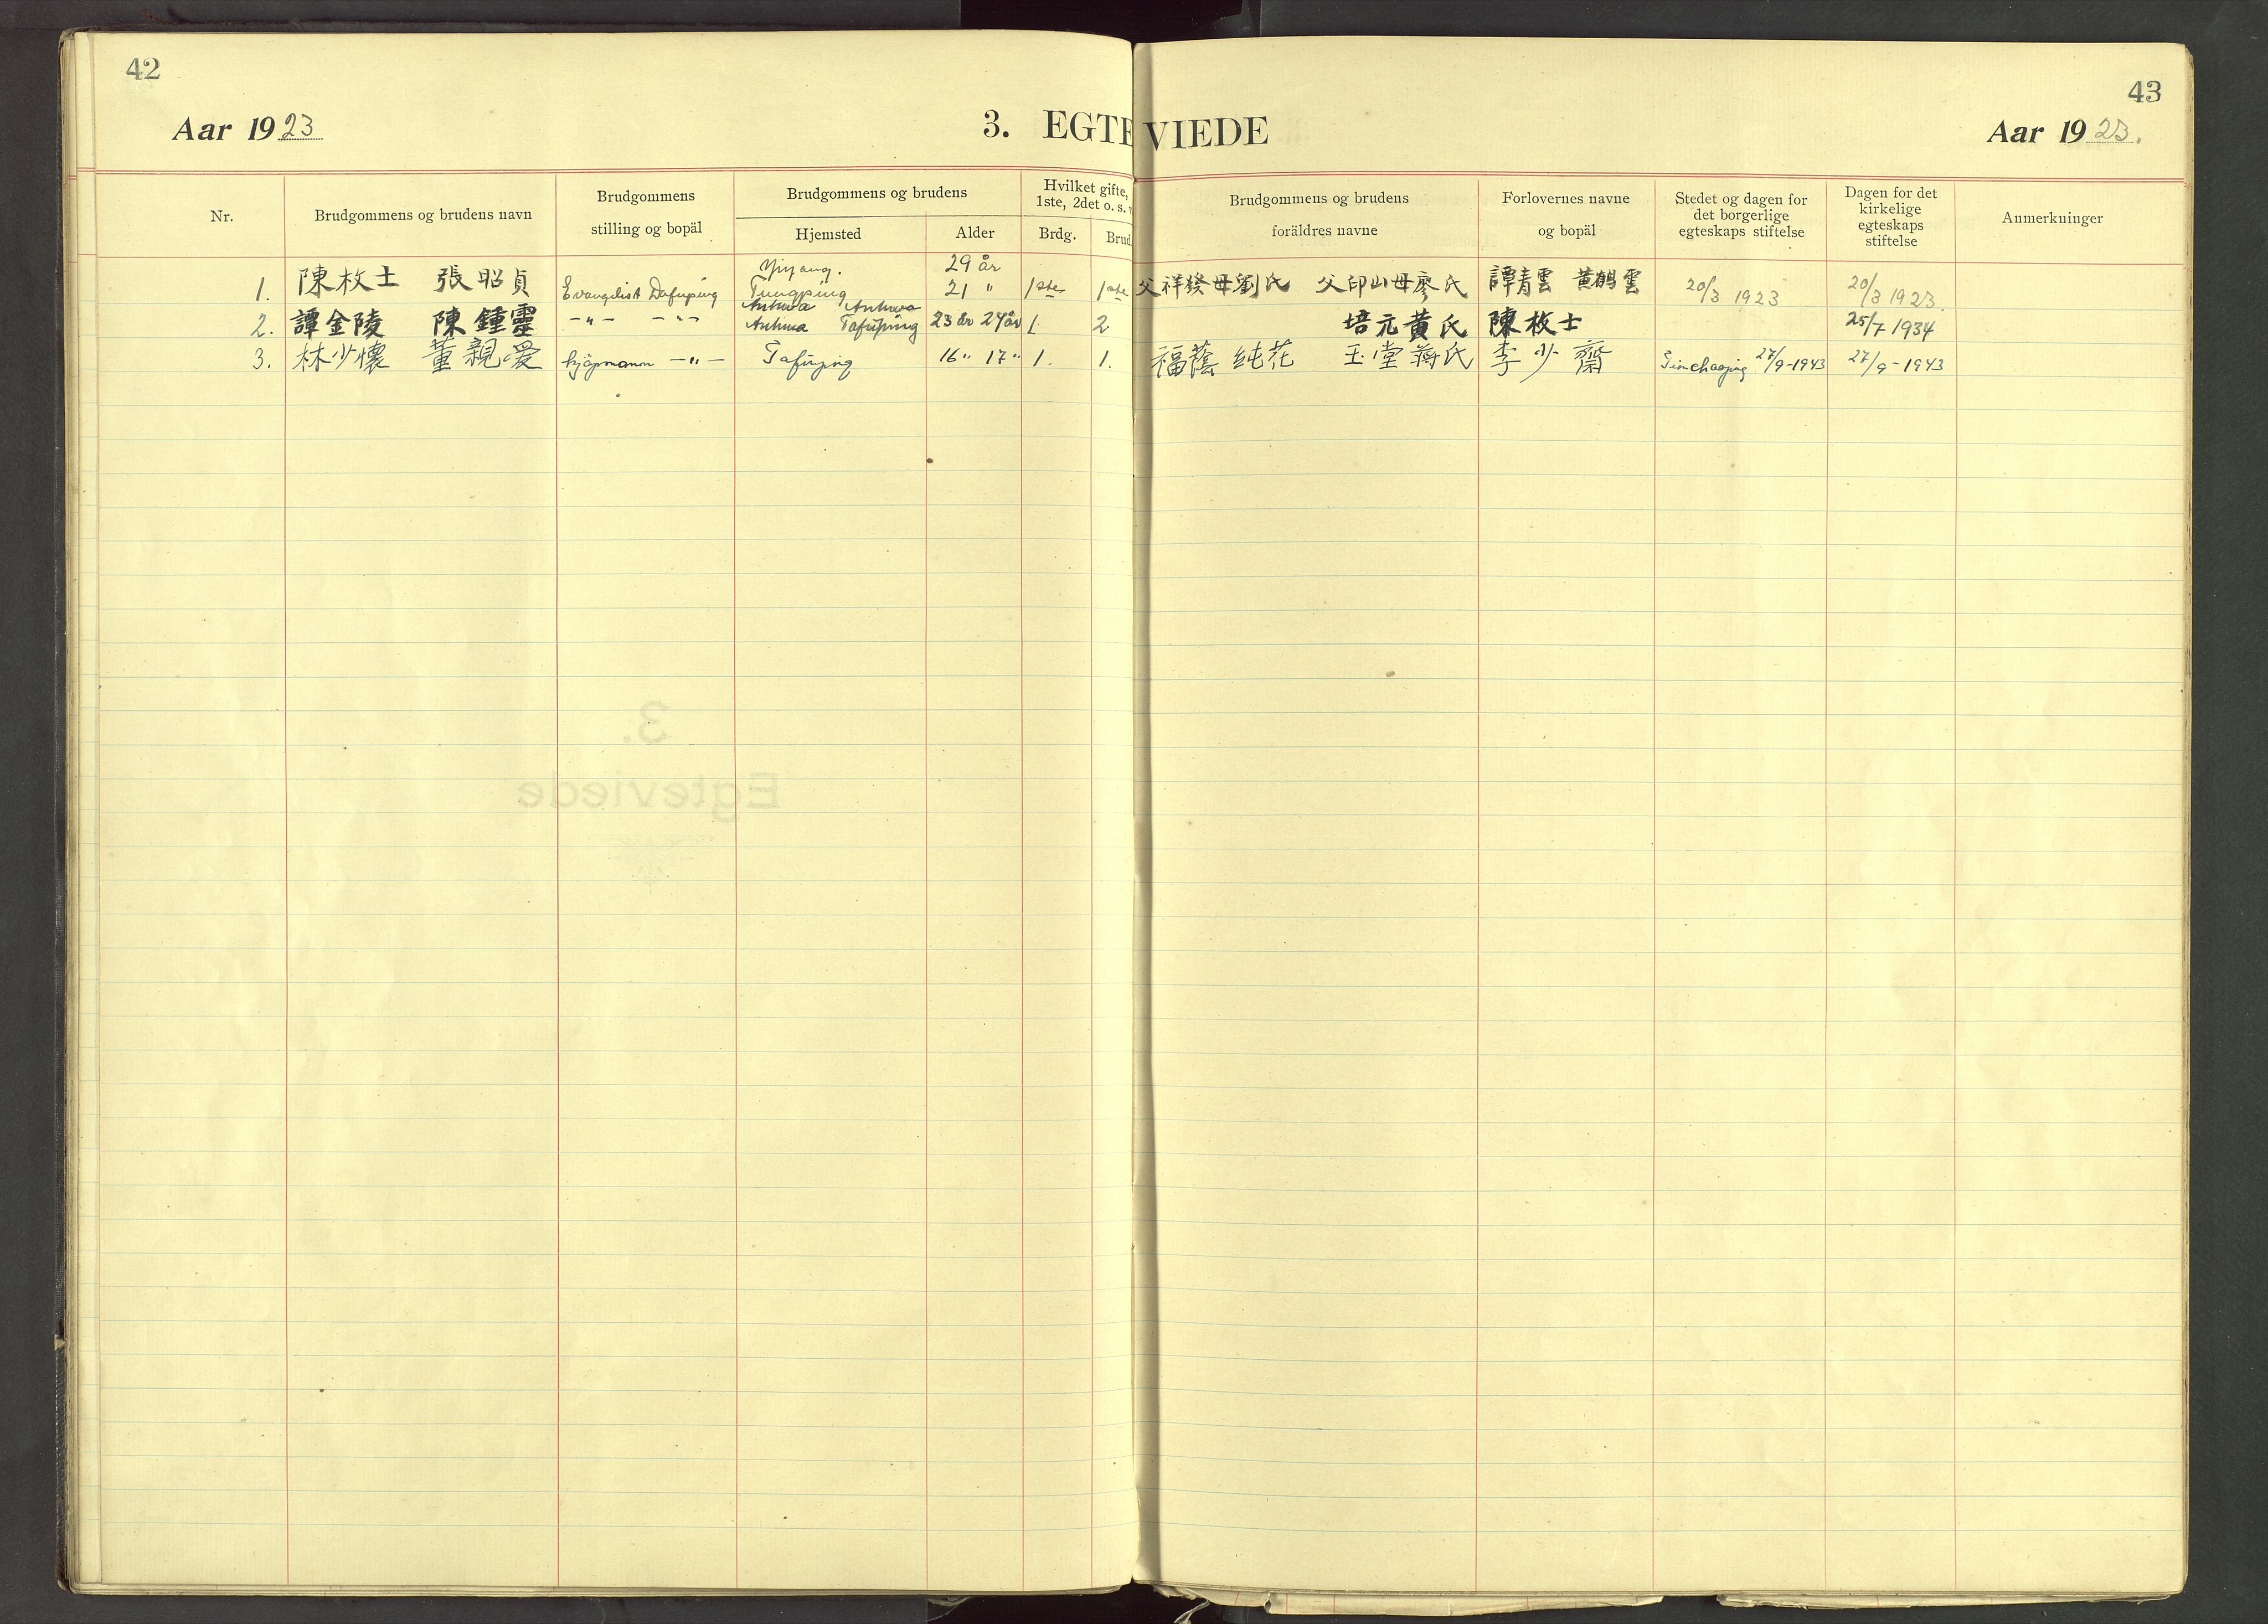 42
43
Aar 1923
3. EGTEVIEDE
Aar 1923.
Nr.
Brudgommens og brudens navn
Brudgommens
stilling og bopäl
Brudgommens og brudens
Hjemsted
Alder
Hvilket gifte,
1ste, 2det o. s.
Brdg.
Brud
Brudgommens og brudens
foräldres navne
Forlovernes navne
og bopäl
Stedet og dagen for
det borgerlige
egteskaps stiftelse
Dagen for det
kirkelige
egteskaps
stiftelse
Anmerkninger
Yiyang. 29 år
1. 陳枚士 張昭貞 Evangelist Dafuping Tungping 21 " 1ste 1ste 父祥發母劉氏 父印山母廖氏 譚青雲 黃鶴雲 20/3 1923 20/3 1923
Anhwa Anhwa
2. 譚金陵 陳鍾靈 -"- -"- Anhwa Tafuping 23 år 24 år 1. 2 培元黃氏 陳枚士 25/7 1934
3. 林少懷 董親愛 kjöpmann -"- Tafuping 16 " 17 " 1. 1. 福蔭 純花 玉堂蔣氏 李少齋 27/9-1943 27/9-1943
3.
Egteviede